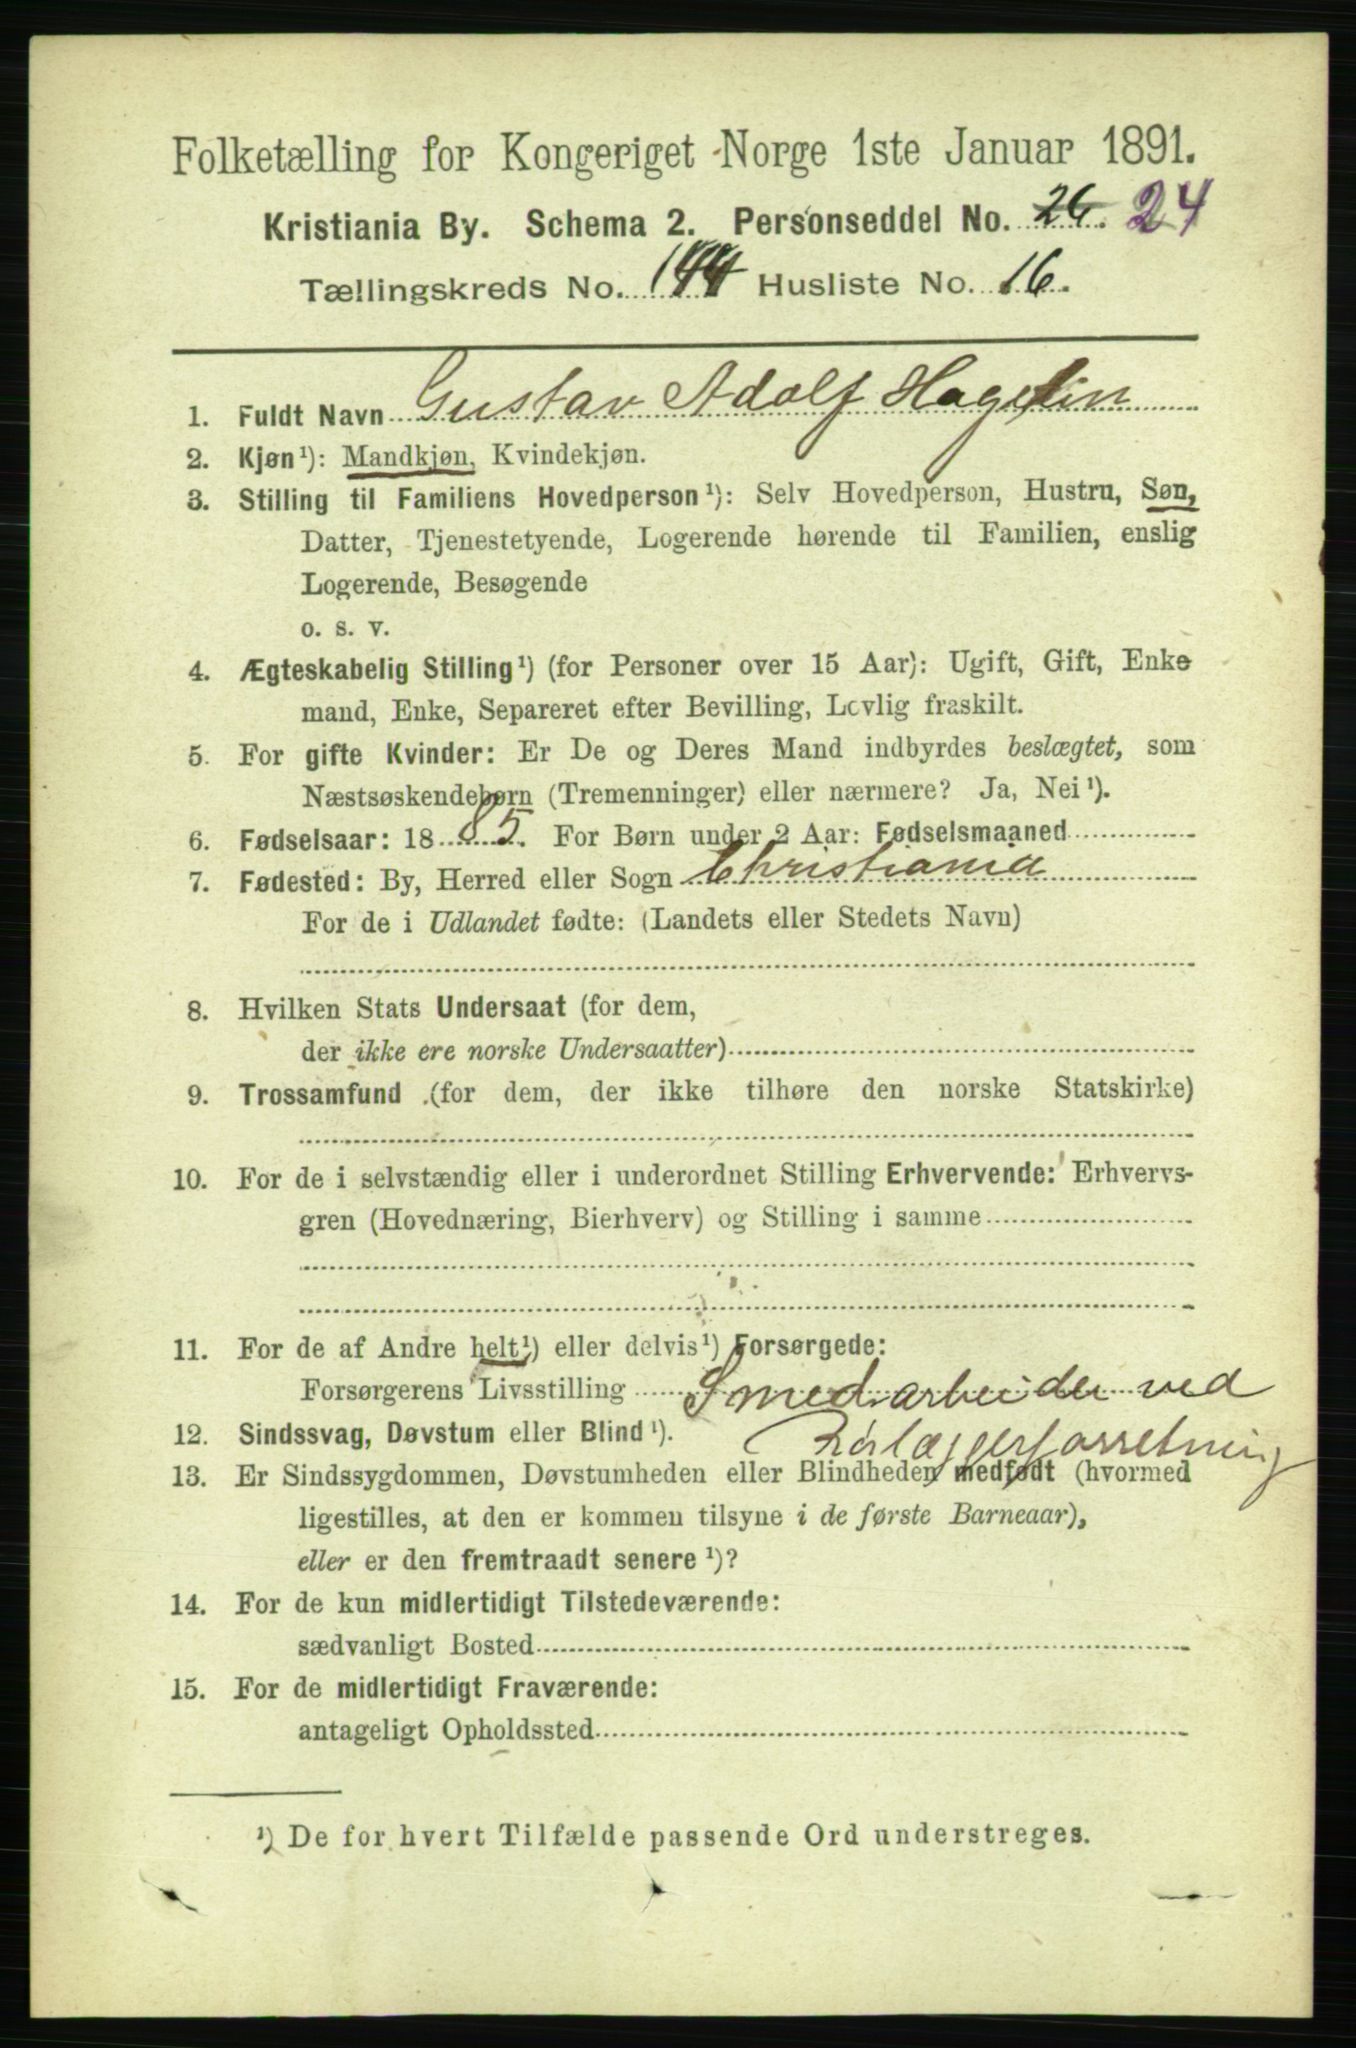 Folketælling for Kongeriget Norge 1ste Januar 1891.
Kristiania By. Schema 2. Personseddel No. 26. 24
Tællingskreds No. 144 Husliste No. 16.
1. Fuldt Navn Gustav Adolf Hagelin
2. Kjøn ¹): Mandkjøn, Kvindekjøn.
3. Stilling til Familiens Hovedperson ¹): Selv Hovedperson, Hustru, Søn,
Datter, Tjenestetyende, Logerende hørende til Familien, enslig
Logerende, Besøgende
o. s. v.
4. Ægteskabelig Stilling ¹) (for Personer over 15 Aar): Ugift, Gift, Enke
mand, Enke, Separeret efter Bevilling, Lovlig fraskilt.
5. For gifte Kvinder: Er De og Deres Mand indbyrdes beslægtet, som
Næstsøskendebørn (Tremenninger) eller nærmere? Ja, Nei ¹).
6. Fødselsaar: 18 85. For Børn under 2 Aar: Fødselsmaaned
7. Fødested: By, Herred eller Sogn Christiania
For de i Udlandet fødte: (Landets eller Stedets Navn)
8. Hvilken Stats Undersaat (for dem,
der ikke ere norske Undersaatter)
9. Trossamfund (for dem, der ikke tilhøre den norske Statskirke)
10. For de i selvstændig eller i underordnet Stilling Erhvervende: Erhvervs-
gren (Hovednæring, Bierhverv) og Stilling i samme
11. For de af Andre helt ¹) eller delvis ¹) Forsørgede:
Forsørgerens Livsstilling Smedarbeider ved
Rørlæggerforretning
12. Sindssvag, Døvstum eller Blind ¹).
13. Er Sindssygdommen, Døvstumheden eller Blindheden medfødt (hvormed
ligestilles, at den er kommen tilsyne i de første Barneaar),
eller er den fremtraadt senere ¹)?
14. For de kun midlertidigt Tilstedeværende:
sædvanligt Bosted
15. For de midlertidigt Fraværende:
antageligt Opholdssted
¹) De for hvert Tilfælde passende Ord understreges.